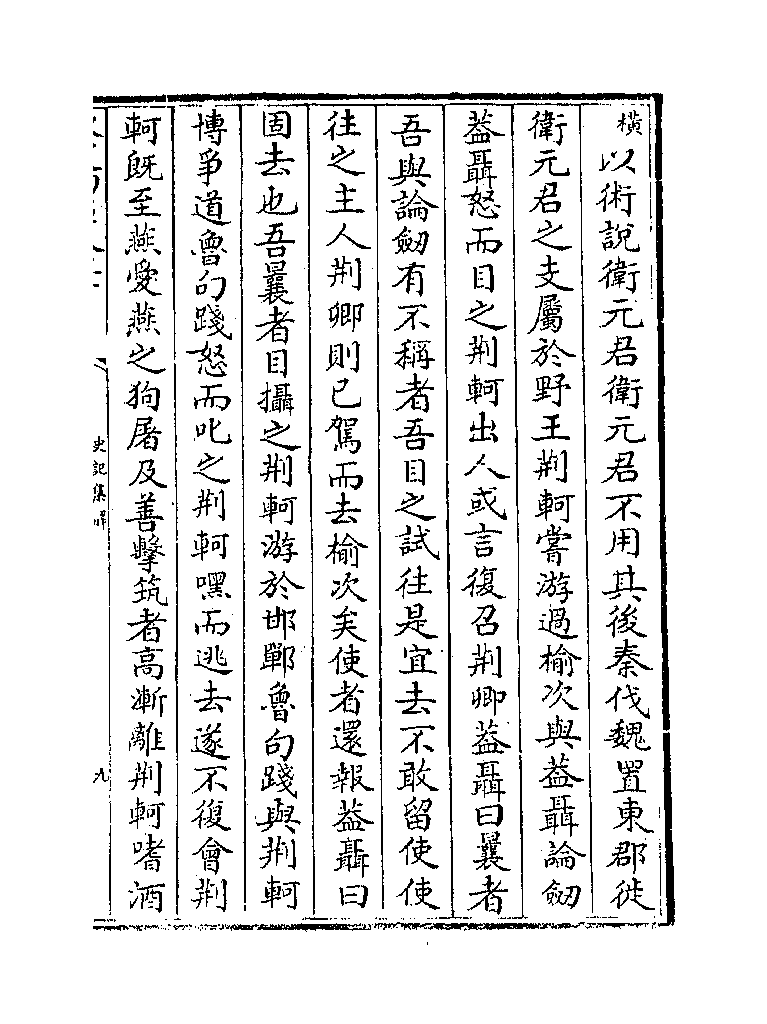 橫以術說衛元君衛元君不用其後秦伐魏置東郡徙
衛元君之支屬於野王荆軻嘗游過榆次與葢聶論劒
葢聶怒而目之荆軻出人或言復召荆卿葢聶曰曩者
吾與論劒有不稱者吾目之試往是宜去不敢留使使
往之主人荆卿則已駕而去榆次矣使者還報葢聶曰
固去也吾曩者目攝之荆軻游於邯鄲魯句踐與荆軻
博爭道魯句踐怒而叱之荆軻嘿而逃去遂不復會荆
軻既至燕愛燕之狗屠及善擊筑者高漸離荆軻嗜酒
史記集解
九